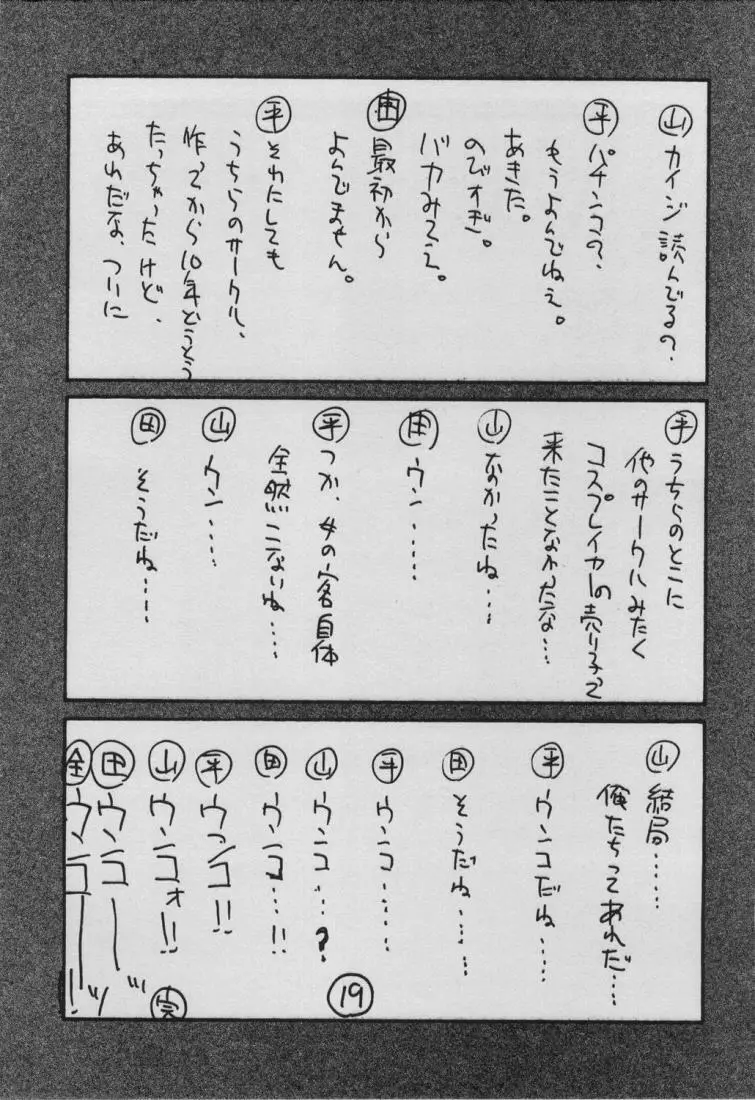 山 カイジ読んでるの?
平 パチンコの?
もうよんでねえ。
あきた。
のびすぎ。
バカみてえ。
田 最初から
よんでません。
平 それにしても
うちらのサークル、
作ってから10年どうとう
たっちゃったけど、
あれだな、ついに
平 うちらのとこに
他のサークルみたく
コスプレイヤーの売り子って
来たことなかったな…
山 なかったね…
田 ウン……
平 つか、女の客自体
全然こないね……
山 ウン……
田 そうだね…
山 結局……
俺たちってあれだ…
平 ウンコだね……
田 そうだね……
平 ウンコ……
山 ウンコ…?
田 ウンコ…!!
平 ウンコ!!
山 ウンコォ!!
田 ウンコーッ!!
全 ウンコーッ!!
完
19